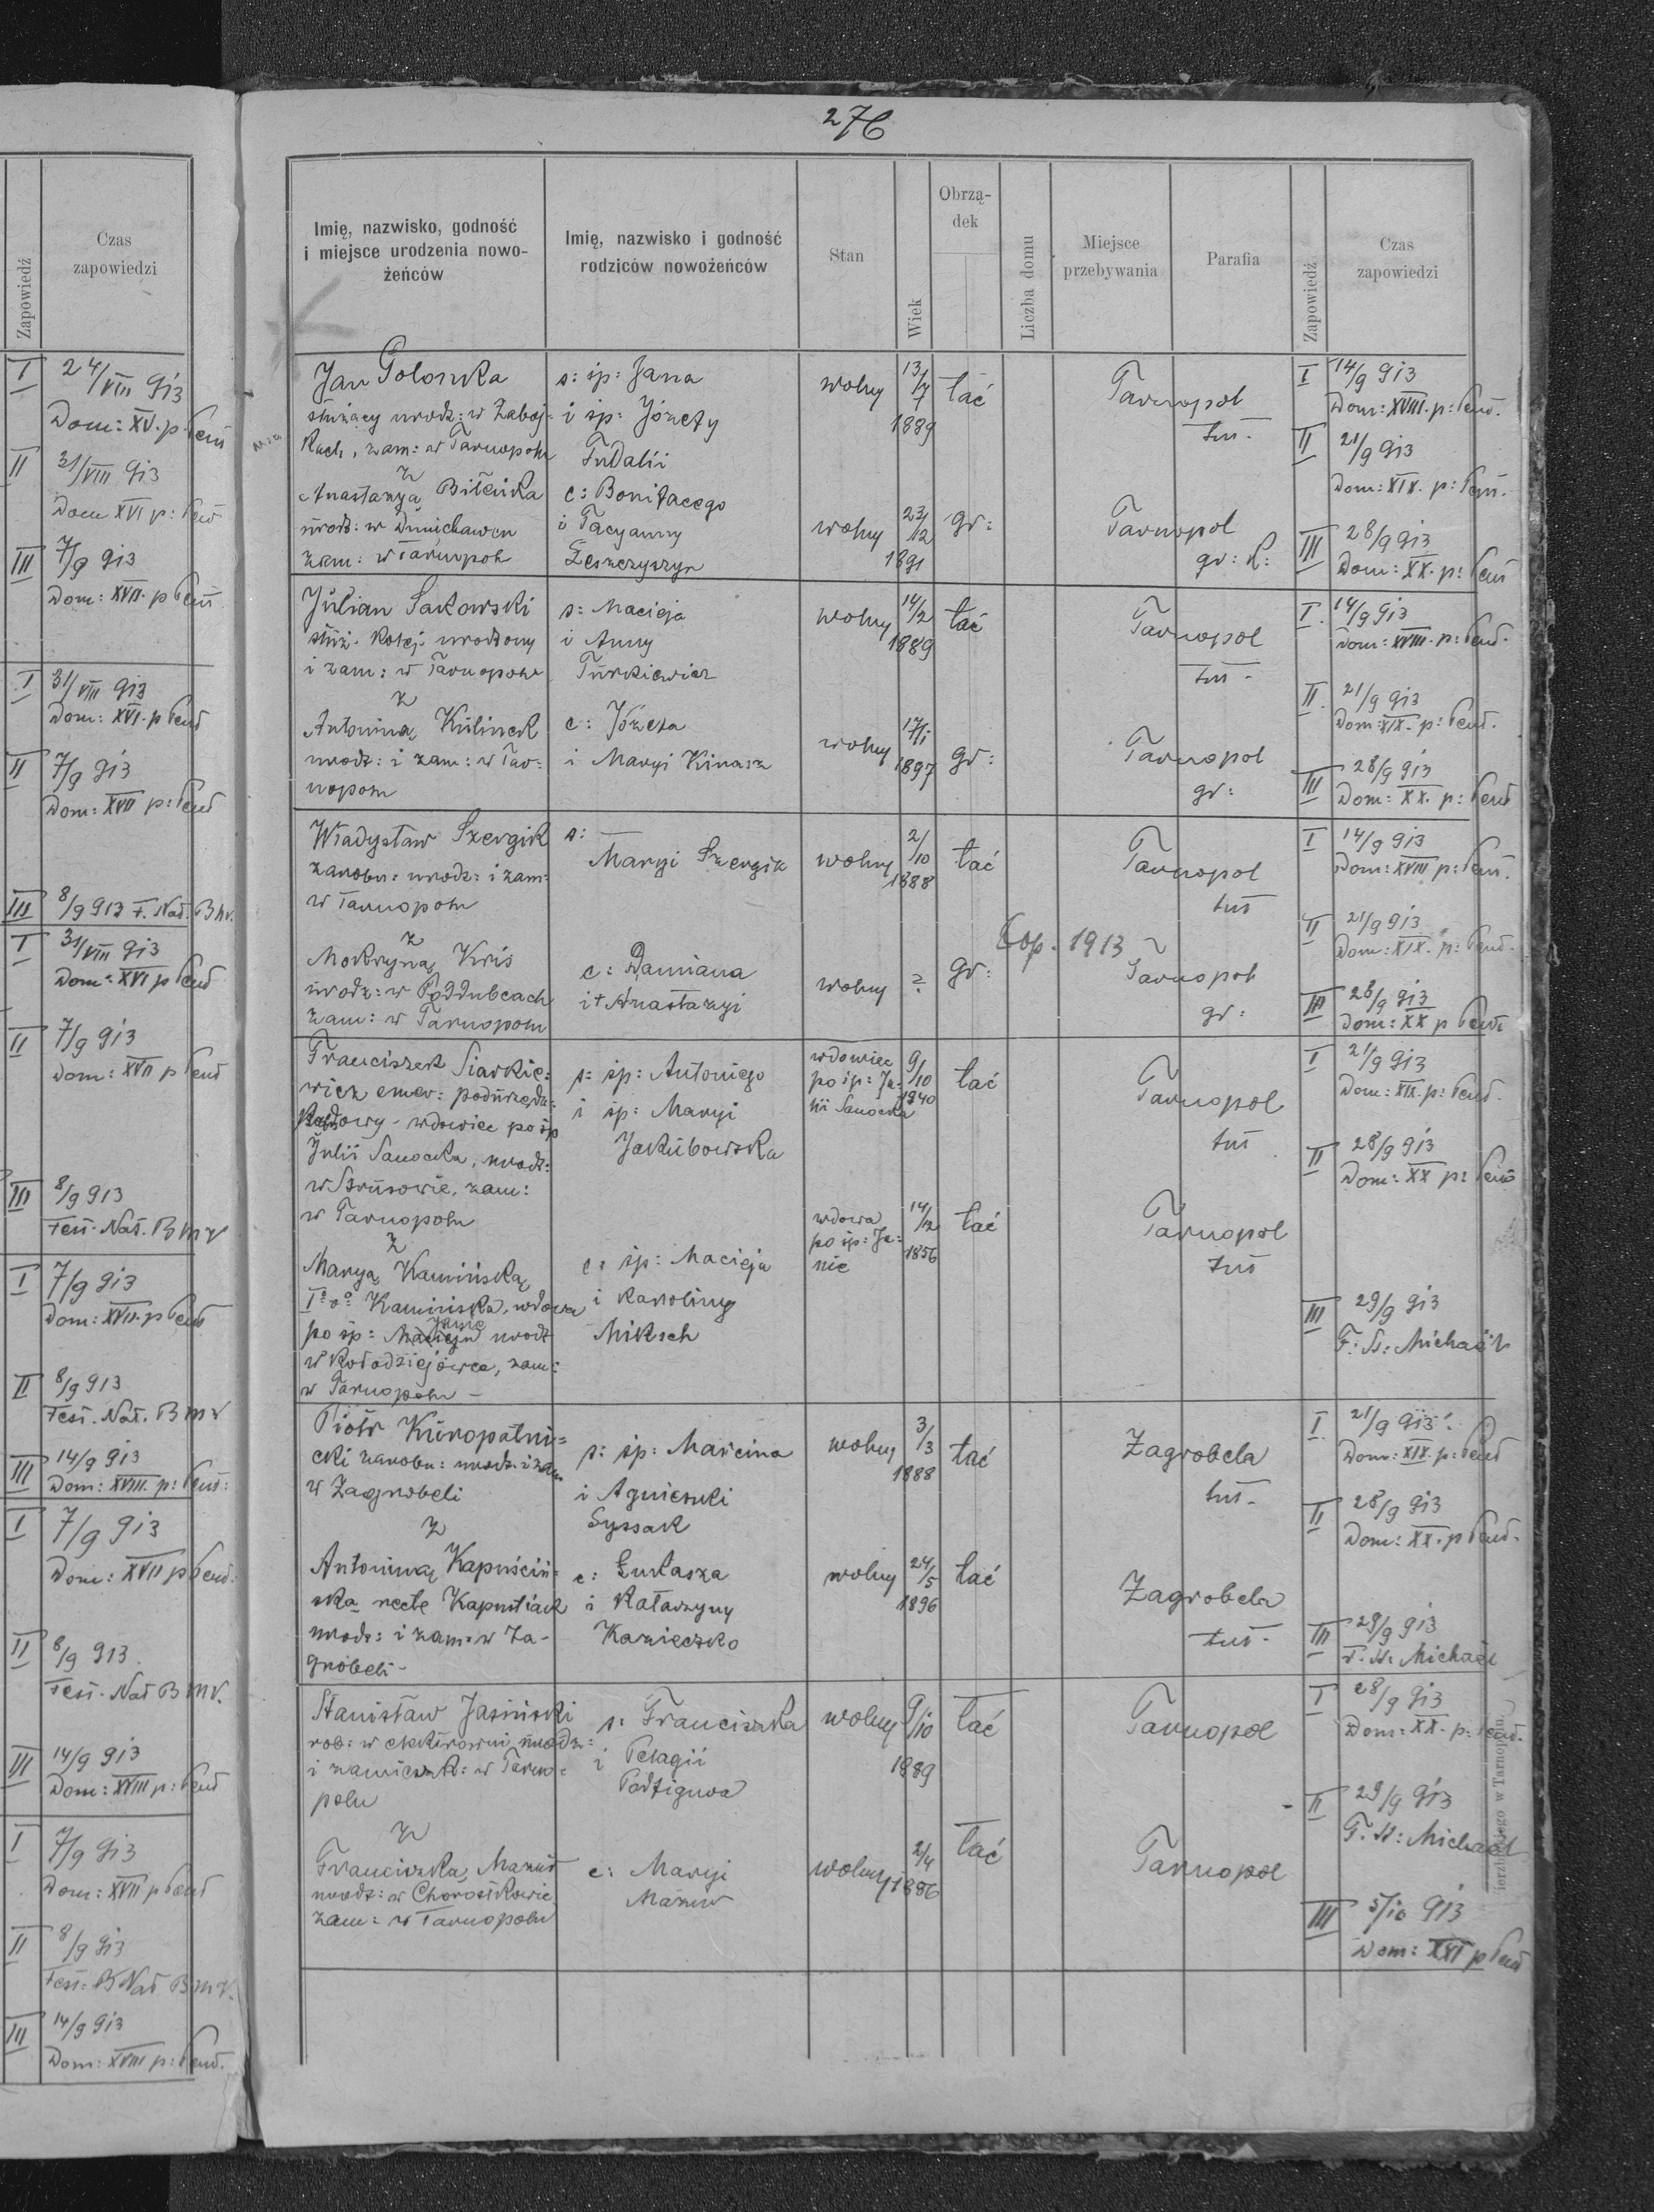 Zapowiedź
Czas
zapowiedzi
I 24/VIII 913
Dom: XV. p. Pent
II 31/VIII 913
Dom XVI p: Pent
III 7/9 913
Dom: XVII. p Pent
I 31/VIII 913
Dom: XVI. p Pent
II 7/9 913
Dom: XVII p: Pent
III 8/9 913 F. Nat. B m v.
I 31/VIII 913
Dom: XVI p Pent
II 7/9 913
Dom: XVII p Pent
III 8/9 913
Fest. Nat. B m v
I 7/9 913
Dom: XVII. p Pent
II 8/9 913
Fest. Nat. B m v
III 14/9 913
Dom: XVIII. p: Pent:
I 7/9 913
Dom: XVII p Pent.
II 8/9 913.
Fest. Nat B m v.
III 14/9 913
Dom: XVIII p: Pent
I 7/9 913
Dom: XVII p Pent
II 8/9 913
Fest: Nat B m v.
III 14/9 913
Dom: XVIII p: Pent.
276
Imię, nazwisko, godność
i miejsce urodzenia nowo-
żeńców
Imię, nazwisko i godność
rodziców nowożeńców
Stan
Wiek
Obrzą-
dek
Liczba domu
Miejsce
przebywania
Parafia
Zapowiedź
Czas
zapowiedzi
Jan Golonka
służący urodz: w Zaboj=
kach, zam: w Tarnopolu
z
Anastazyą Bileńka
urodz: w
zam: w Tarnopolu
s: śp: Jana
i śp: Józefy
Fudalii
c: Bonifacego
i Tacyanny
Leszczyszyn
wolny 13/7 1889 łać
Tarnopol
tut.
wolny 23/12 1891 gr:
Tarnopol
gr: K:
I 14/9 913
Dom: XVIII. p: Pent.
II 21/9 913
Dom: XIX. p: Pent.
III 28/9 913
Dom: XX. p: Pent
Julian Sakowski
służ. kolej. urodzony
i zam: w Tarnopolu
z
Antoniną Kulinek
urodz: i zam: w Tar=
nopolu
s: Macieja
i Anny
Turkiewicz
c: Józefa
i Maryi Kinasz
wolny 14/2 1889 łać
Tarnopol
tut.
wolny 17/1 1897 gr:
Tarnopol
gr:
I. 14/9 913
Dom: XVIII. p: Pent.
II. 21/9 913
Dom: XIX. p: Pent.
III 28/9 913
Dom: XX. p: Pent
Władysław Szergik
zarobn: urodz: i zam:
w Tarnopolu
z
Mokryną Kris
urodz: w Poddubcach
zam: w Tarnopolu
s:
Maryi Szergik
c: Damiana
i + Anastazyi
wolny 2/10 1888 łać
Tarnopol
tut
Cop. 1913
wolny ? gr:
Tarnopol
gr:
I 14/9 913
Dom: XVIII p: Pent.
II 21/9 913
Dom: XIX. p: Pent.
III 28/9 913
Dom: XX p Pent
Franciszek Siarkie:
wicz emer: podurzędn:
wdowiec po śp
Julii Sanocka, urodz:
w Strusowie, zam:
w Tarnopolu
z
Maryą Kamińską,
I° v° Kamińska, wdowa
po śp: Janie urodz
w Kołodziejówce, zam:
w Tarnopolu –
s: śp: Antoniego
i śp: Maryi
Jakubowska
c: śp: Macieja
i Karoliny
Miksch
wdowiec
po śp: Ju:
lii Sanocka
9/10 1840 łać
Tarnopol
tut
wdowa
po śp: Ja:
nie
14/2 1856 łać
Tarnopol
tut
I 21/9 913
Dom: XIX. p: Pent.
II 28/9 913
Dom: XX p: Pent
III 29/9 913
F: St: Michaël
Piotr Kuropatni=
cki zarobn: urodz. i zam
w Zagrobeli
z
Antoniną Kapuściń=
ską recte Kapustiack
urodz: i zam: w Za-
grobeli -
s: śp: Marcina
i Agnieszki
Syssak
c: Łukasza
i Katarzyny
Kazieczko
wolny 3/3 1888 łać
Zagrobela
tut.
wolny 24/5 1896 łać
Zagrobela
tut.
I. 21/9 913
Dom: XIX. p: Pent
II 28/9 913
Dom: XX. p Pent.
III 29/9 913
F. St: Michaël
Stanisław Jasiński
rob: w elektrowni urodz:
i zamieszk: w Tarno=
polu
z
Franciszką Mazur
urodz: w Chorostkowie
zam: w Tarnopolu
s: Franciszka
i Pelagii
c: Maryi
Mazur
wolny 9/10 1889 łać
Tarnopol
wolny 2/4 łać
Tarnopol
I 28/9 913
Dom: XX. p: Pent.
II 29/9 913
F. St: Michaël
III 5/10 913
Dom: XXI p Pent
w Tarnopolu